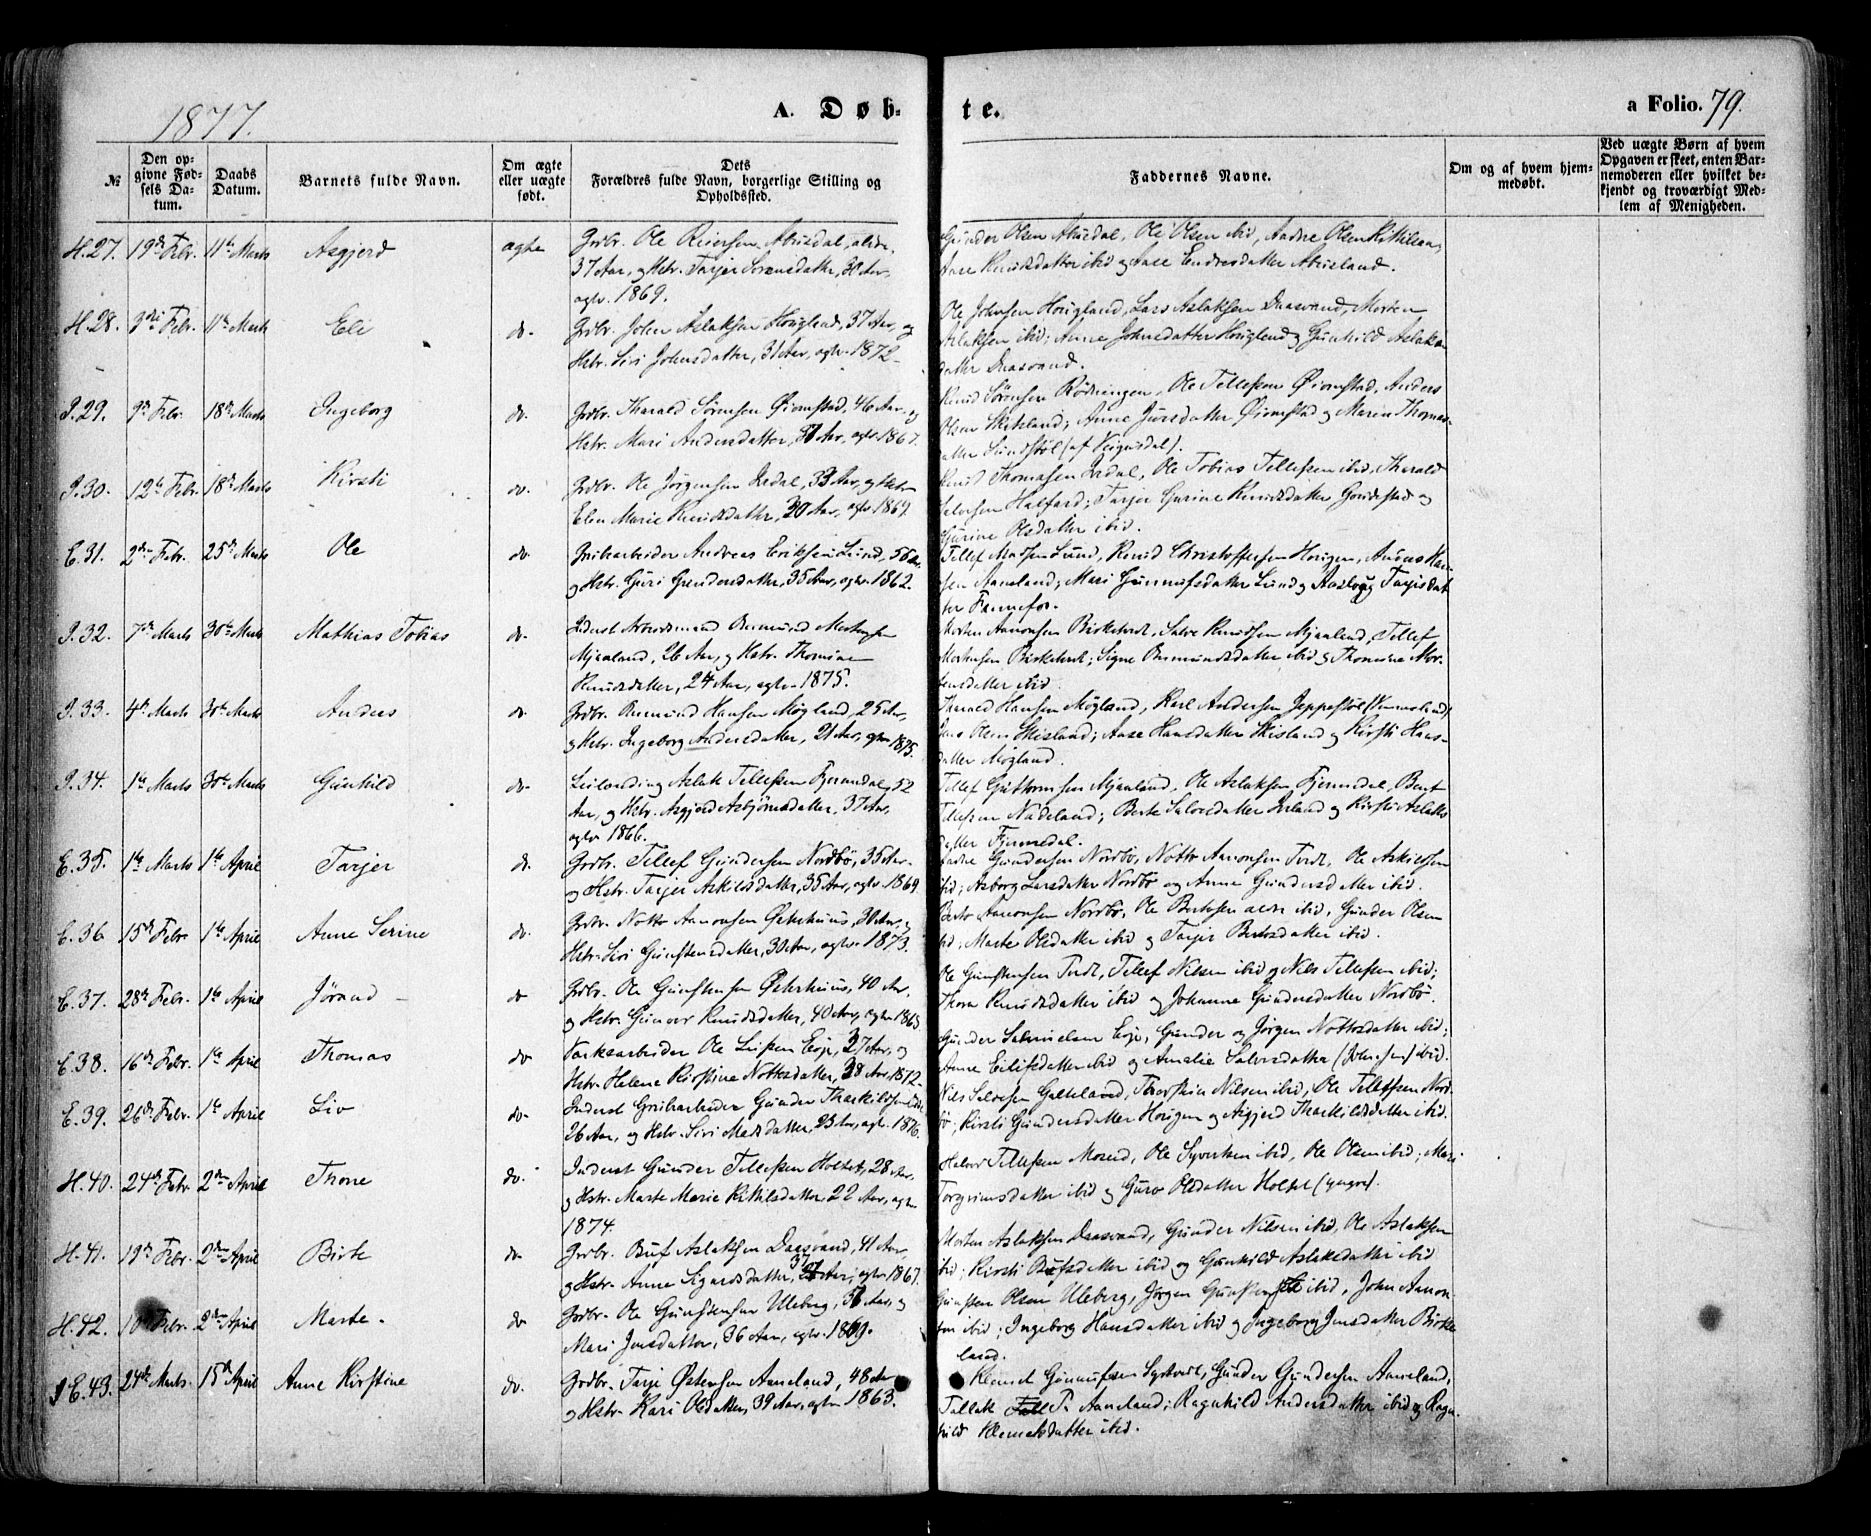 1877.
A. Døb-
te.
a Folio. 79.
№
Den op-
givne Fød-
sels Da-
tum.
Daabs
Datum.
Barnets fulde Navn.
Om ægte
eller uægte
født.
Dets
Forældres fulde Navn, borgerlige Stilling og
Opholdssted.
Faddernes Navne.
Om og af hvem hjem-
medøbt.
Ved uægte Børn af hvem
Opgaven er skeet, enten Bar-
nemoderen eller hvilket be-
kjendt og troværdigt Med-
lem af Menigheden.
H.27. 19de Febr. 11te Marts Asgjerd ægte Grdbr. Ole Reiersen Abusdal,
37 Aar, og Hstr. Tarjer Sorensdatter, 30 Aar,
agtv. 1869.
Gunder Olsen Abusdal, Ole Olsen ibid, Aadne Olsen
Aase Knudsdatter ibid og Aase Endresdatter Abusland.
H.28. 3die Febr. 11te Marts Eli do. Grdbr. John Aslaksen Hougland, 37 Aar, og
Hstr. Siri Johnsdatter, 31 Aar, agtv. 1872.
Ole Johnsen Hougland, Lars Aslaksen Daasvand, Morten
Aslaksen ibid; Anne Johnsdatter Hougland og Gunhild Aslaks-
datter Daasvand.
I.29. 9de Febr. 18de Marts Ingeborg do. Grdbr. Tharald Sørensen Øiomstad, 46 Aar, og
Hstr. Mari Andersdatter, 31 Aar, agtv. 1867.
Knud Sørensen Rødningen, Ole Tellefsen Øiomstad, Anders
Olsen Skisland; Anne Juvsdatter Øiomstad og Maren Thomas-
datter Lundstøl (af Veigusdal).
I.30. 12te Febr. 18de Marts Kirsti do. Grdbr. Ole Jørgensen Irdal, 33 Aar, og Hstr.
Elen Marie Knudsdatter, 30 Aar, agtv. 1869.
Knud Thomasen Irdal, Ole Tobias Tellefsen ibid, Tharald
Salvesen Halfard; Tarjer Gurine Knudsdatter Gouestad og
Gurine Olsdatter ibid.
E.31. 2den Febr. 25de Marts Ole do. Grubearbeider Andreas Eriksen Lund, 56 Aar,
og Hstr. Guri Gundersdatter, 35 Aar, agtv. 1862.
Tellef Madsen Lund, Knud Christoffersen Horigen, Anders Han-
sen Aaneland; Mari Gunnufsdatter Lund og Aaslaug Tarjesdat-
ter Fennefos.
I.32. 7de Marts 30te Marts Mathias Tobias do. Inderst Arbeidsmand Bermund Mortensen
Mjaaland, 26 Aar, og Hstr. Thomine
Knudsdatter, 24 Aar, agtv. 1875.
Morten Aanonsen Birketvet, Salve Knudsen Mjaaland, Tellef
Mortensen Birketvet; Signe Bermundsdatter ibid og Thomine Mor-
tensdatter ibid.
I.33. 4de Marts 30te Marts Anders do. Grdbr. Bermund Hansen Mogland, 25 Aar,
og Hstr. Ingeborg Andersdatter, 21 Aar, agtv. 1875.
Tharald Hansen Møgland, Karl Andersen Jeppestøl (Vennesland),
Jens Olsen Skisland; Aase Hansdatter Skisland og Kirsti Hans-
datter Møgland.
I.34. 1ste Marts 30te Marts Gunhild do. Leilænding Aslak Tellefsen Fjermedal, 52
Aar, og Hstr. Asgjerd Asbjørnsdatter, 37 Aar,
agtv. 1866.
Tellef Guttormsen Mjaaland, Ole Aslaksen Fjermedal, Bent
Tellefsen Nådeland; Berte Salvesdatter Irland og Kirsti Aslaks-
datter Fjermedal.
E.35. 1ste Marts 1ste April Tarjer do. Grdbr. Tellef Gundersen Nordbø, 35 Aar,
og Hstr. Tarjer Askildsdatter, 35 Aar, agtv. 1869.
Aadne Gundersen Nordbø, Notto Aanonsen Tvedt, Ole Askildsen
ibid; Asborg Larsdatter Nordbø og Anne Gundersdatter ibid.
E.36 15de Febr. 1ste April Anne Serine do. Grdbr. Notto Aanonsen Østerhuus, 30 Aar, og
Hstr. Siri Gunstensdatter, 30 Aar, agtv. 1873.
Berto Aanonsen Nordbø, Ole Bertosen ældre ibid, Gunder Olsen
ibid; Marte Olsdatter ibid og Tarjer Bertosdatter ibid.
E.37. 28de Febr. 1ste April Jørand do. Grdbr. Ole Gunstensen Østerhuus, 40 Aar,
og Hstr. Gunvor Knudsdatter, 40 Aar, agtv. 1863.
Ole Gunstensen Tvedt, Tellef Nilsen ibid og Nils Tellefsen ibid;
Thora Knudsdatter ibid og Johanne Gundersdatter Nordbø.
E.38. 16de Febr. 1ste April Thomas do. Værksarbeider Ole Leifsen Evje, 27 Aar, og
Hstr. Helene Kirstine Nottosdatter, 38 Aar, 1872.
Gunder Salmuelsen Evje, Gunder og Jørgen Nottosdatter ibid;
Anne Eilifsdatter ibid og Amalie Salvesdatter (Johnsen) ibid.
E.39. 26de Febr. 1ste April Liv do. Inderst Grubearbeider Gunder Tharkildsen
26 Aar, og Hstr. Siri Madsdatter, 23 Aar, agtv. 1876.
Nils Salvesen Galteland, Thorstein Nilsen ibid, Ole Tellefsen Nord-
bø; Kirsti Gundersdatter Horigen og Asgjerd Tharkildsdatter ibid.
H.40. 24de Febr. 2den April Thone do. Inderst Gunder Tellefsen Holtet, 28 Aar,
og Hstr. Marte Marie Kittilsdatter, 22 Aar, agtv.
1874.
Halvor Tellefsen Moseid, Ole Syvertsen ibid, Ole Olsen ibid; Mari
Torgrimsdatter ibid og Guro Olsdatter Holtet (yngre).
H.41. 19de Febr. 2den April Birte do. Grdbr. Buf Aslaksen Daasvand, 41 Aar,
og Hstr. Anne Sigurdsdatter, 37 Aar, agtv. 1867.
Morten Aslaksen Daasvand, Gunder Nilsen ibid, Ole Aslaksen
ibid; Kirsti Bufsdatter ibid og Gunhild Aslaksdatter ibid
H.42. 10de Febr. 2den April Marte. do. Grdbr. Ole Gunstensen Uleberg, 51 Aar, og
Mari Jensdatter, 36 Aar, agtv. 1869.
Gunsten Olsen Uleberg, Jørgen Gunstensen ibid, John Aanon-
sen ibid; Ingeborg Hansdatter ibid og Ingeborg Jensdatter Birke-
land.
E.43. 24de Marts 15de April Anne Kirstine do. Grdbr. Tarje Østensen Aaneland, 48 Aar
og Hstr. Kari Olsdatter, 39 Aar, agtv. 1863.
Klemet Gunnufsen Syrtveit, Gunder Gundersen Aaneland,
Tallak T. Aaneland; Ragnhild Andersdatter ibid og Ragn-
hild Klemetsdatter ibid.